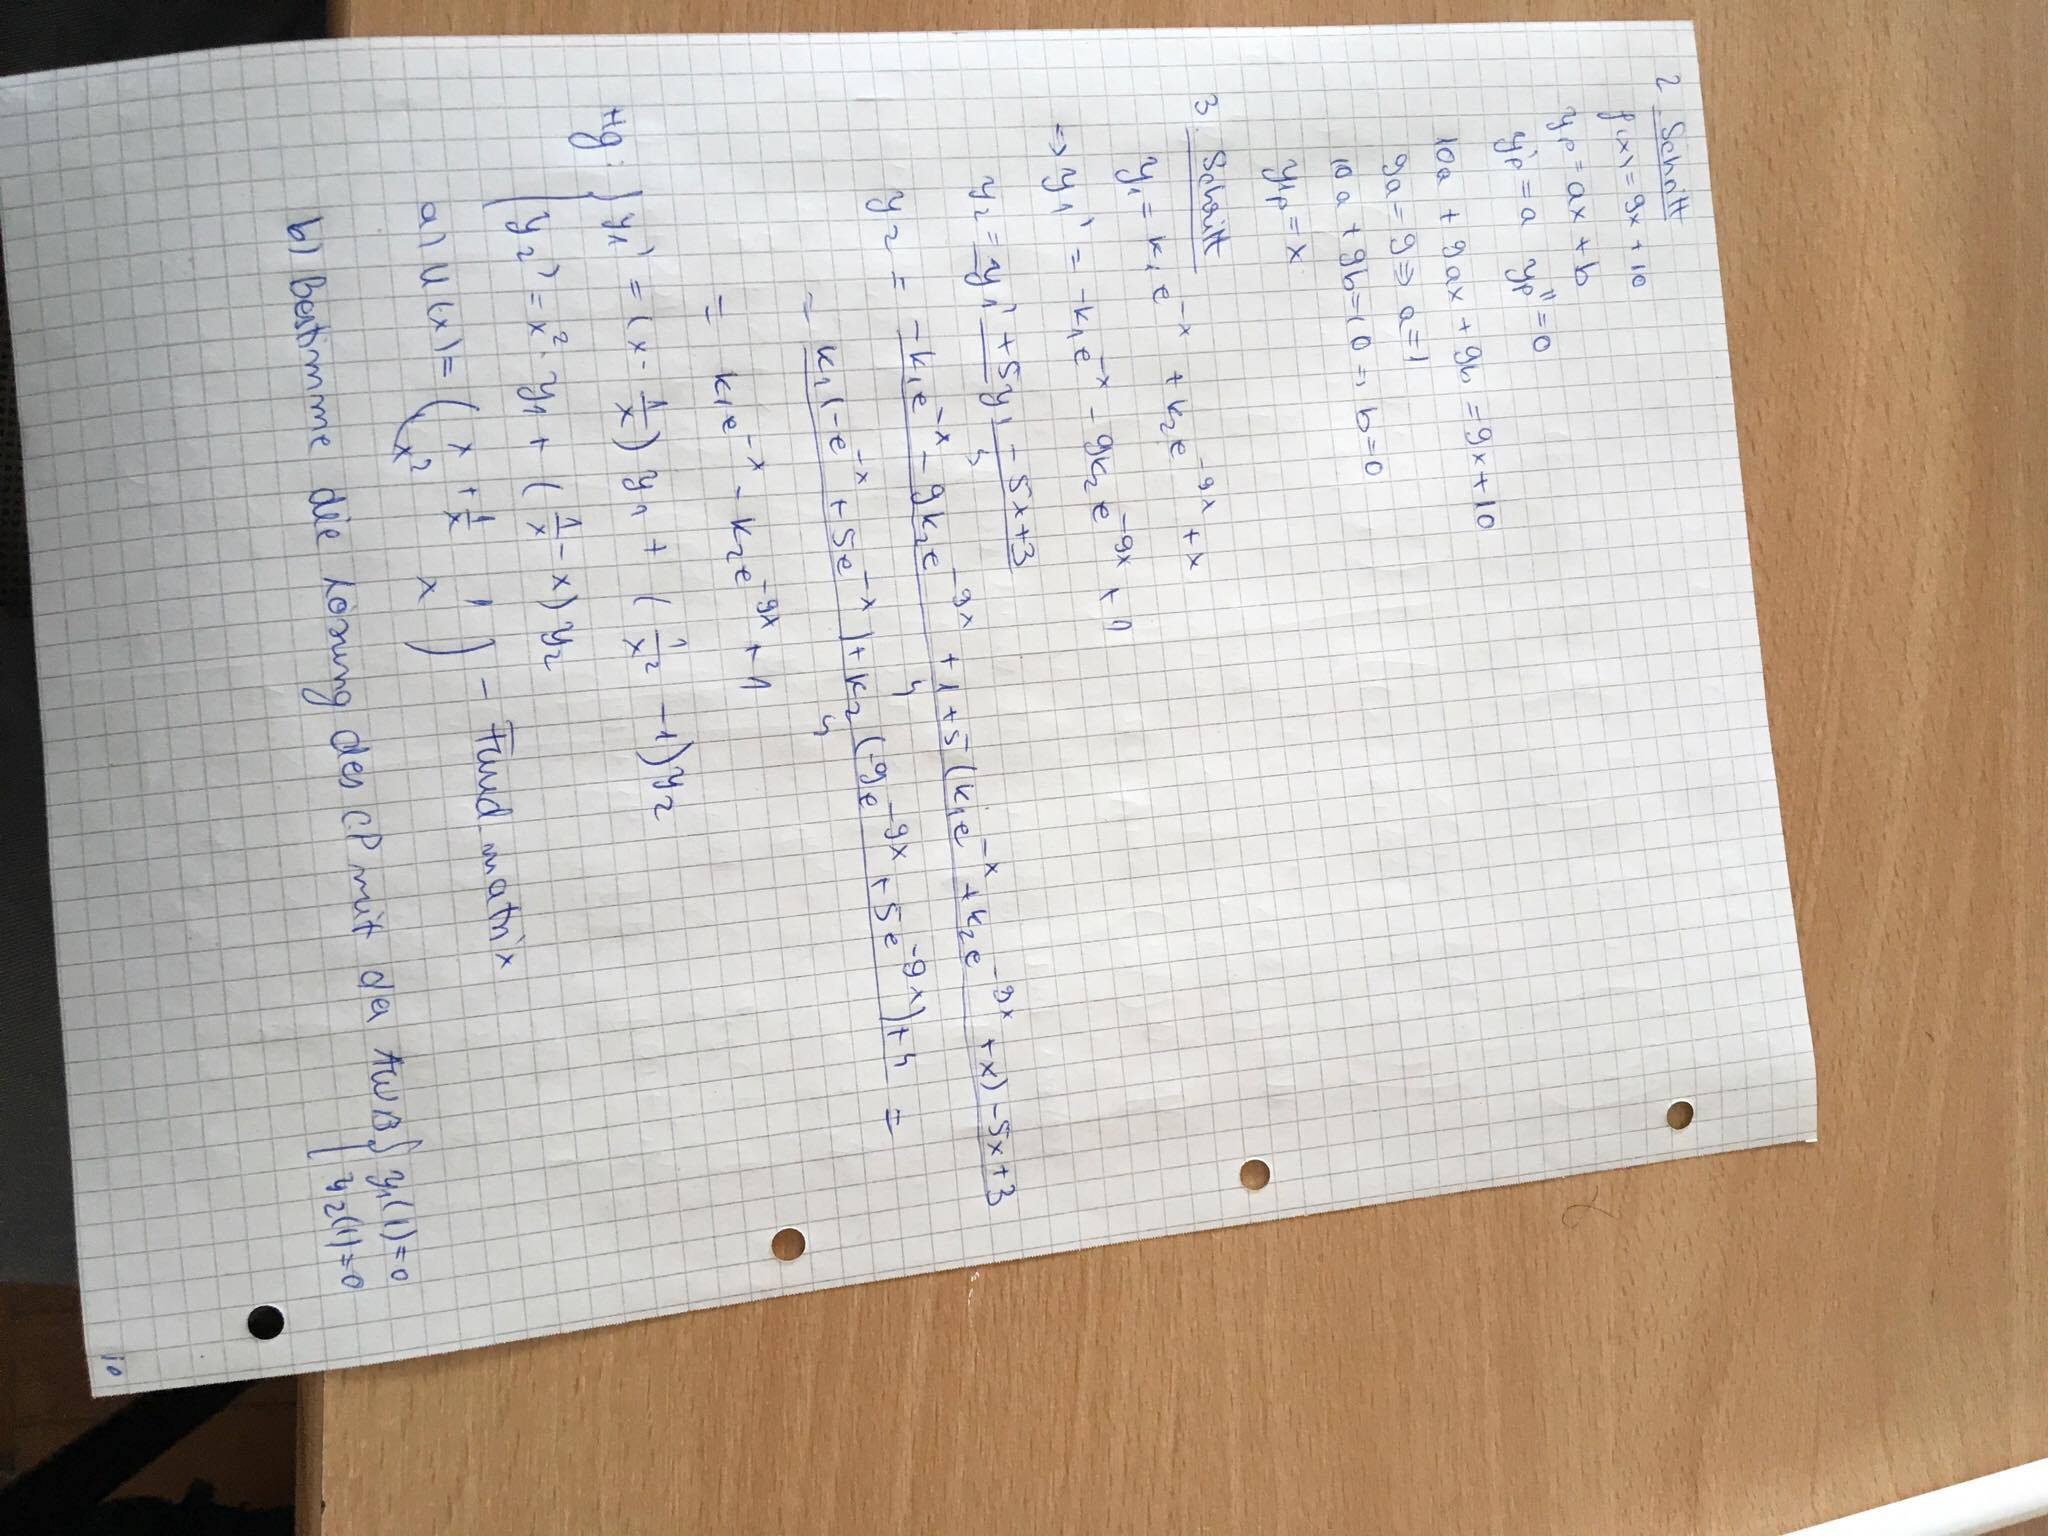 2. Schritt
f(x) = 9x + 10
yp = ax + b
yp' = a yp'' = 0
10a + 9ax + 9b = 9x + 10
9a = 9 => a = 1
10a + 9b = 10 => b = 0
y1p = x
3. Schritt
y1 = k1e^-x + k2e^-9x + x
=> y1' = -k1e^-x - 9k2e^-9x + 1
y2 = (y1' + 5y1 - 5x + 3)/4
y2 = (-k1e^-x - 9k2e^-9x + 1 + 5(k1e^-x + k2e^-9x + x) - 5x + 3)/4
= (k1(-e^-x + 5e^-x) + k2(-9e^-9x + 5e^-9x) + 4)/4 =
= k1e^-x - k2e^-9x + 1
{ y1' = (x - 1/x) y1 + (1/x^2 - 1) y2
{ y2' = x^2 · y1 + (1/x - x) y2
a) U(x) = ( x + 1/x 1
x^2 x ) - Fundmatrix
b) Bestimme die Lösung des CP mit da AWB { y1(1) = 0
{ y2(1) = 0
10